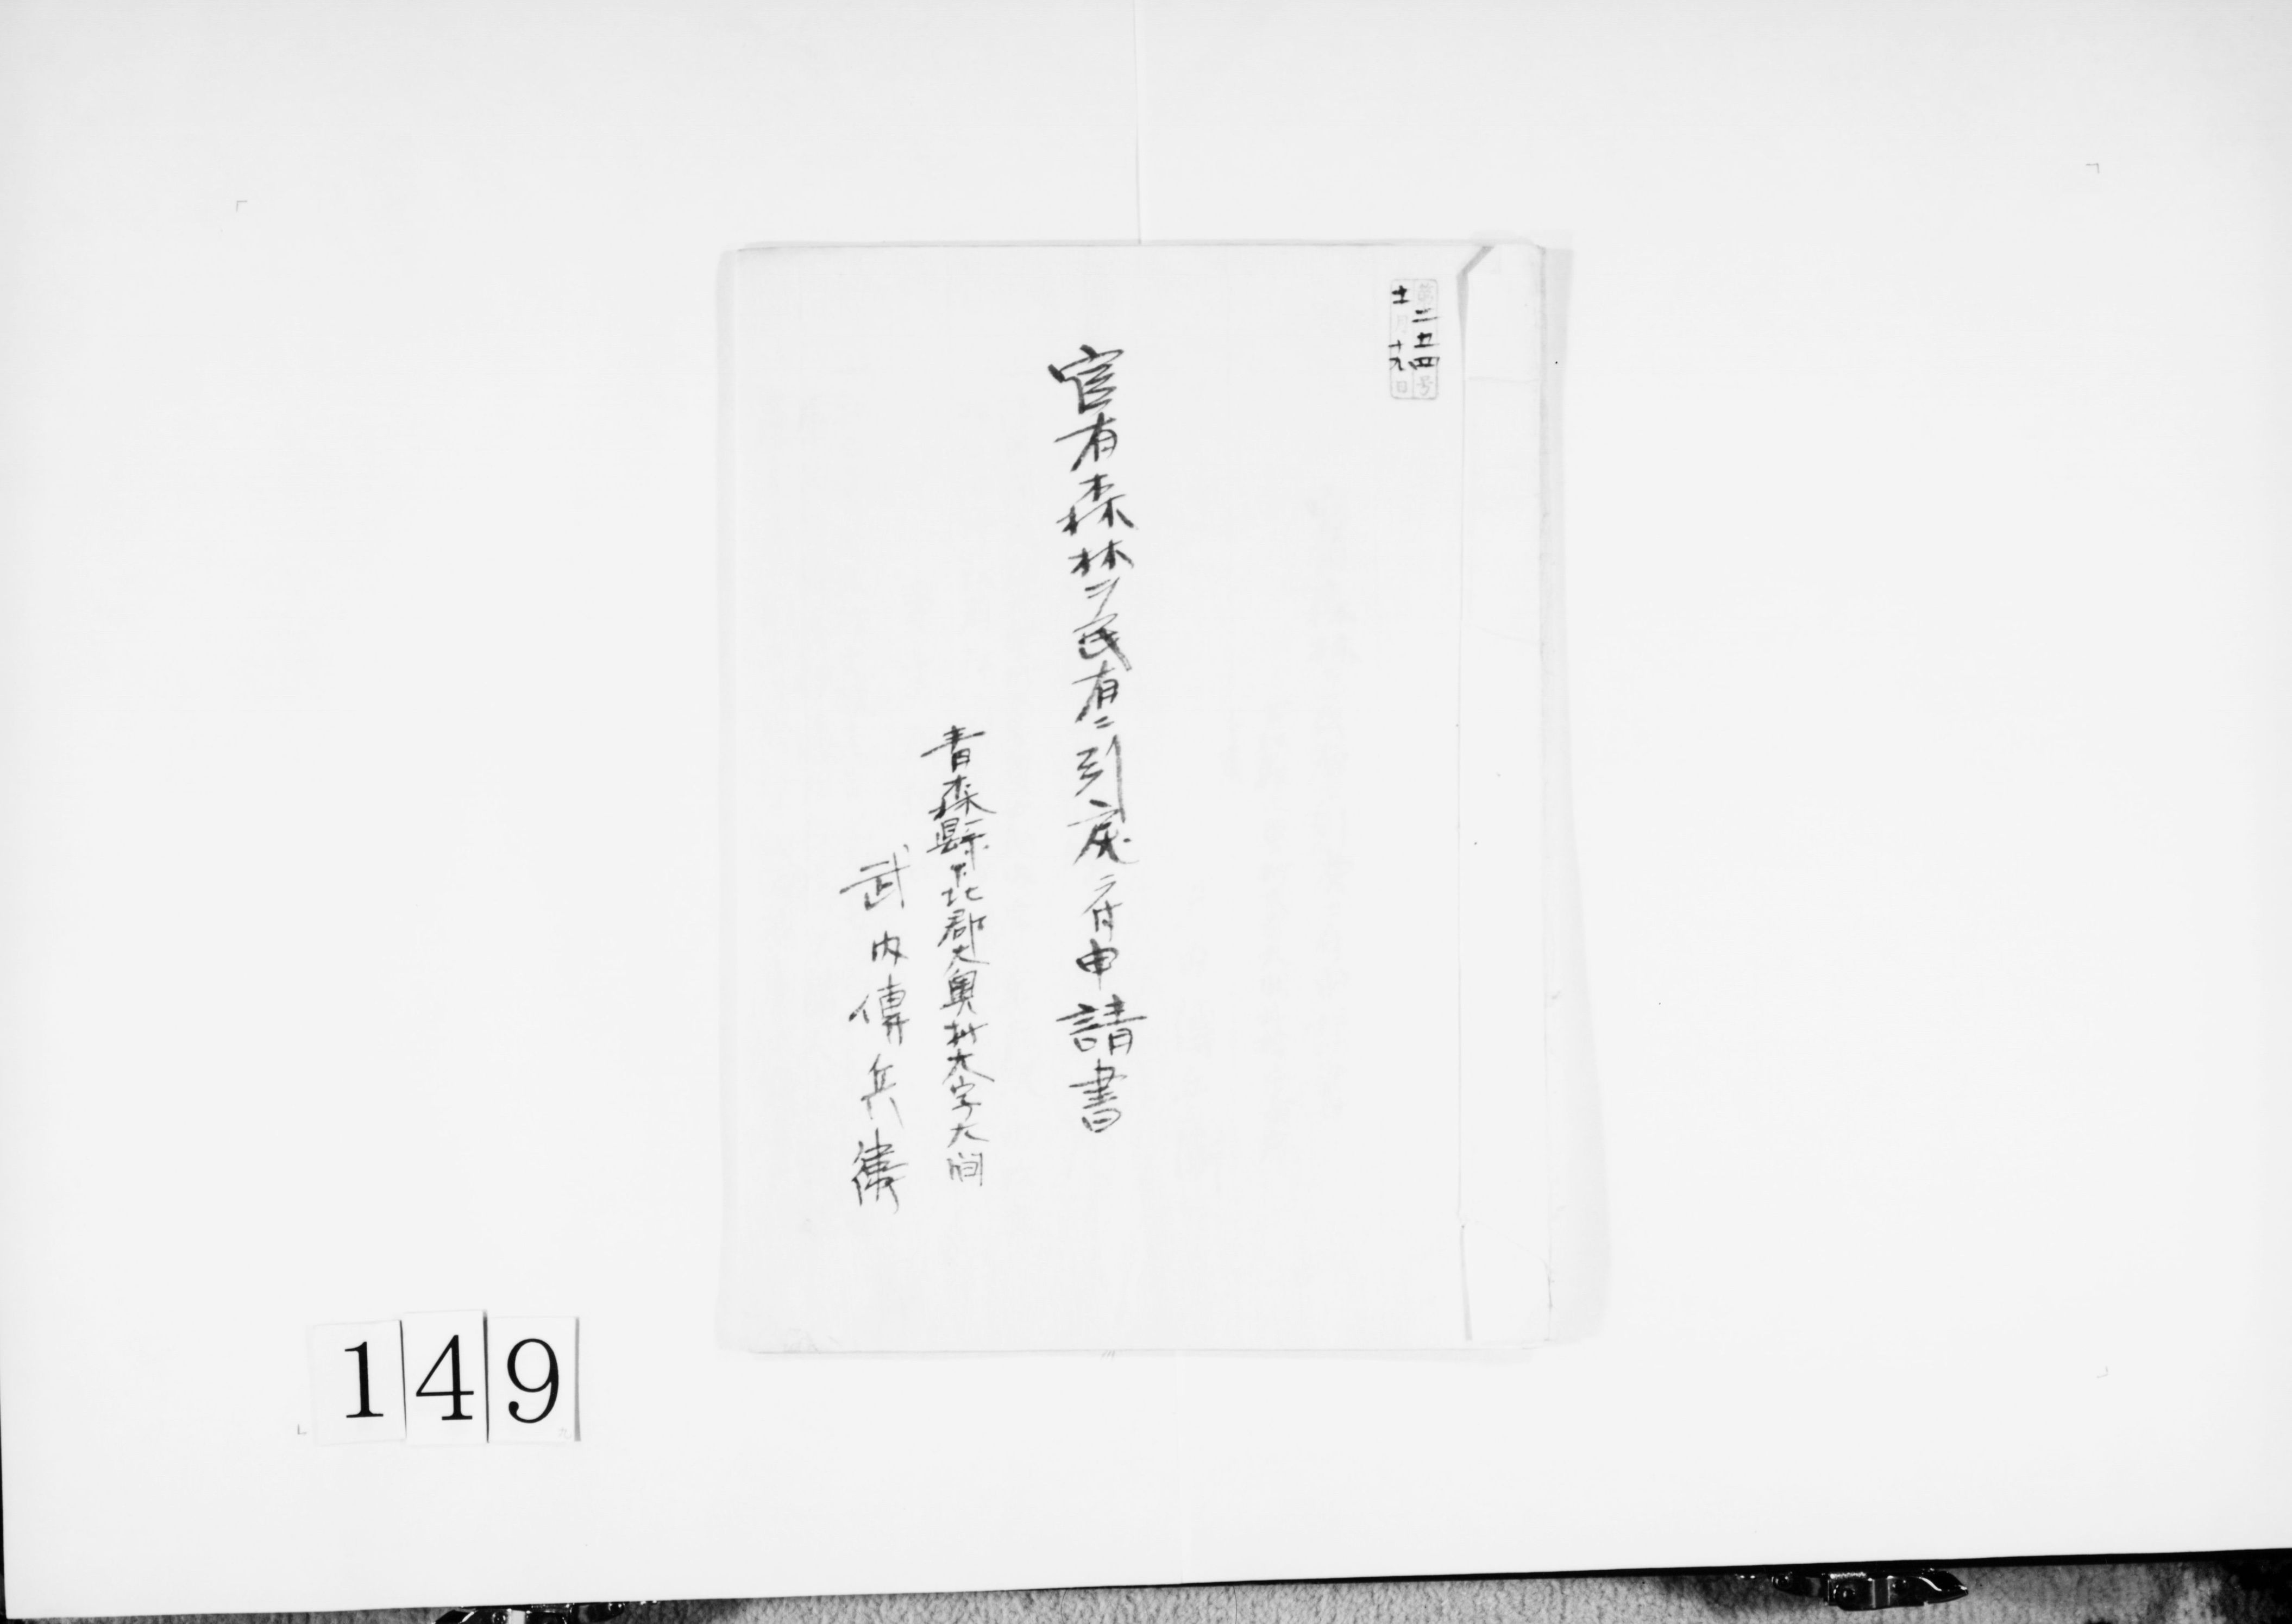 第二五四号
十一月十九日
官有森林ヲ民有ニ引戻ニ付申請書
青森縣下北郡大奥村大字大間
武内傳兵衛
149